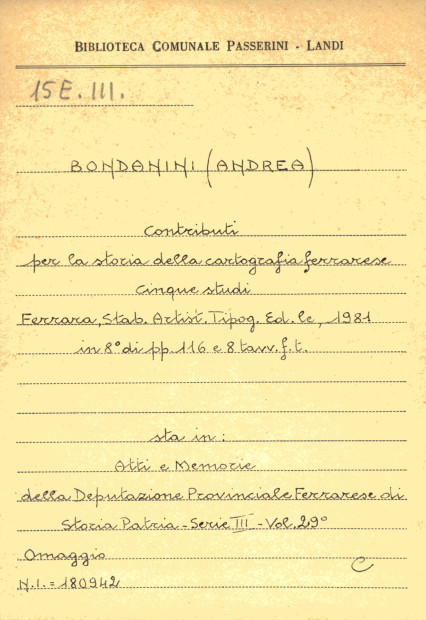 BIBLIOTECA COMUNALE PASSERINI - LANDI
15 E. III.
BONDANINI (ANDREA)
Contributi
per la storia della cartografia ferrarese
Cinque studi
Ferrara, Stab. Artist. Tipog. Ed.le, 1981
in 8° di pp. 116 e 8 tavv. f.t.
sta in:
Atti e Memorie
della Deputazione Provinciale Ferrarese di
Storia Patria - Serie III - Vol. 29°
Omaggio
C
N.I. = 180942